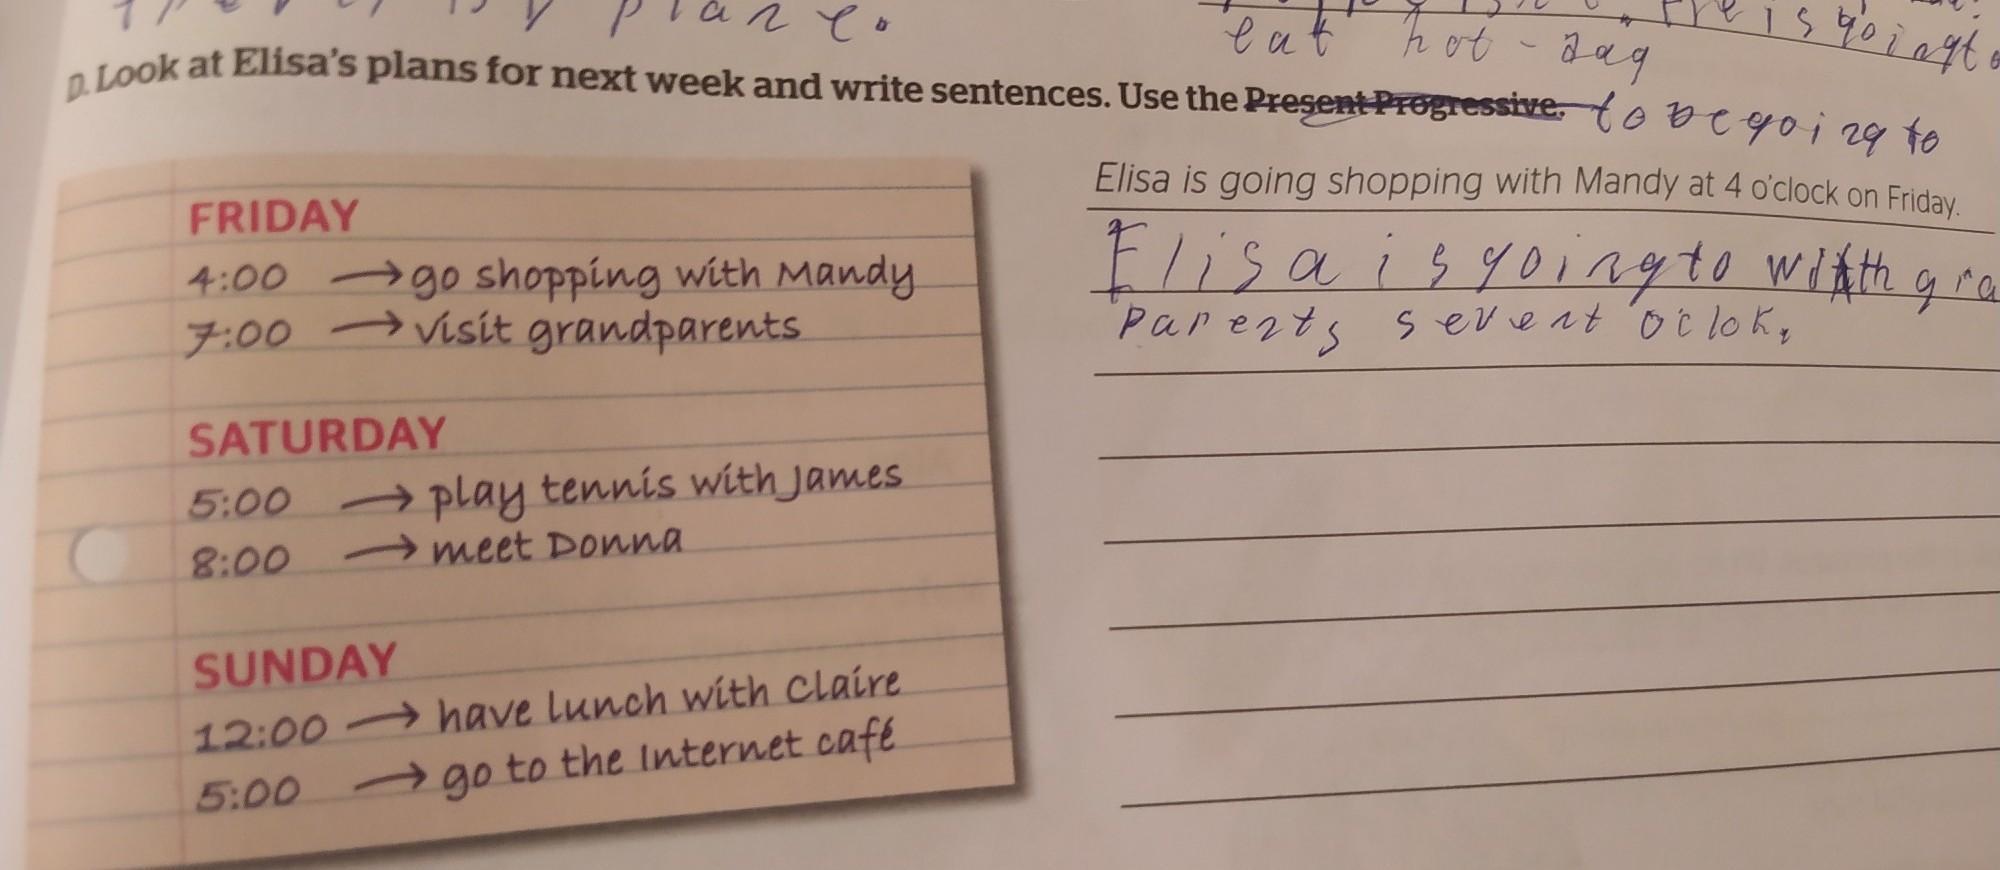 plane.
eat hot-dag
is going to
D. Look at Elisa's plans for next week and write sentences. Use the Present Progressive. to be going to
FRIDAY
4:00 → go shopping with Mandy
7:00 → visit grandparents
SATURDAY
5:00 → play tennis with James
8:00 → meet Donna
SUNDAY
12:00 → have lunch with Claire
5:00 → go to the Internet café
Elisa is going shopping with Mandy at 4 o'clock on Friday.
Elisa is going to with gra
parents sevent oclok.